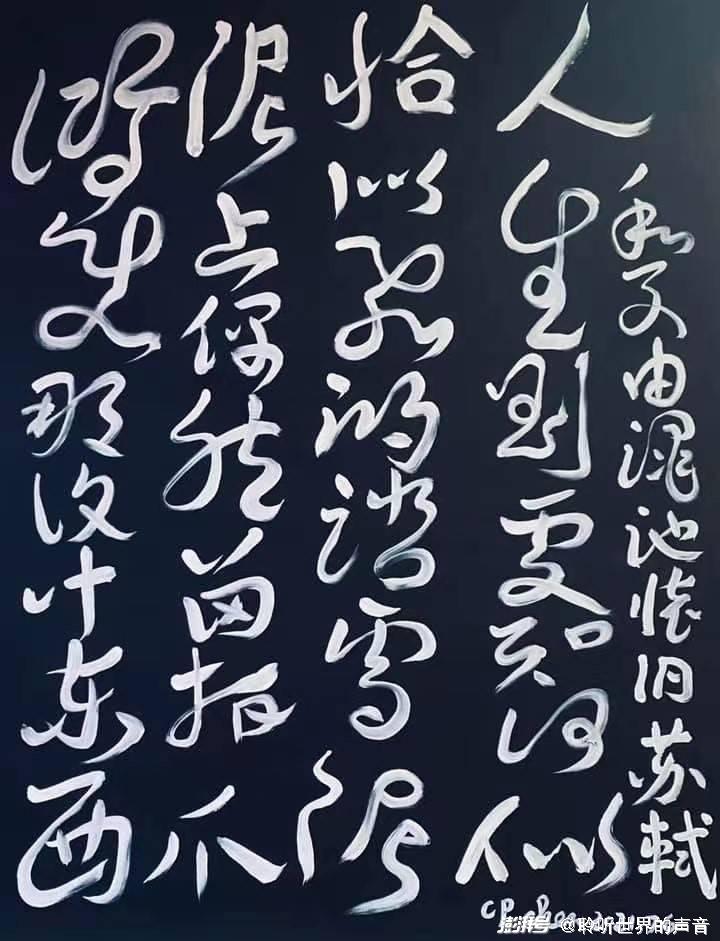 和子由渑池怀旧苏轼
人生到处知何似
恰似飞鸿踏雪泥
泥上偶然留指爪
鸿飞那复计东西
澎湃号 @聆听世界的声音